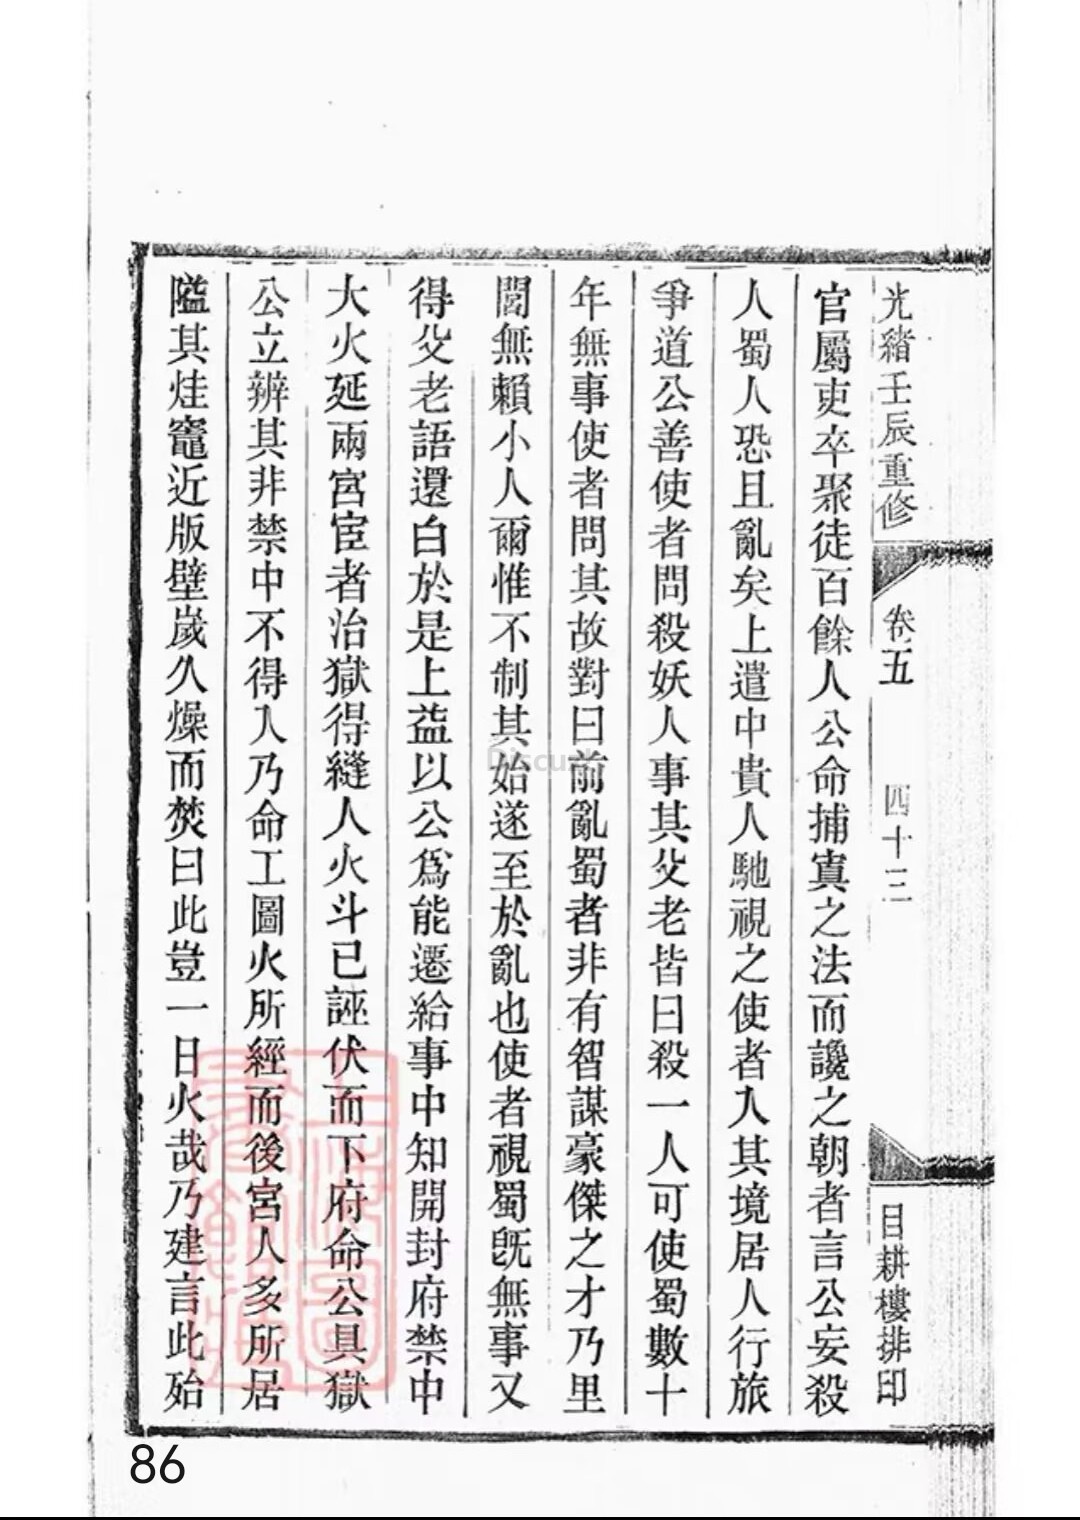 光緒壬辰重修
卷五
四十三
目耕樓排印
官屬吏卒聚徒百餘人公命捕寘之法而讒之朝者言公妄殺
人蜀人恐且亂矣上遣中貴人馳視之使者入其境居人行旅
爭道公善使者問殺妖人事其父老皆曰殺一人可使蜀數十
年無事使者問其故對曰前亂蜀者非有智謀豪傑之才乃里
閭無賴小人爾惟不制其始遂至於亂也使者視蜀旣無事又
得父老語還白於是上益以公爲能遷給事中知開封府禁中
大火延兩宮宦者治獄得縫人火斗已誣伏而下府命公具獄
公立辨其非禁中不得入乃命工圖火所經而後宮人多所居
隘其烓竈近版壁歲久燥而焚曰此豈一日火哉乃建言此殆
86